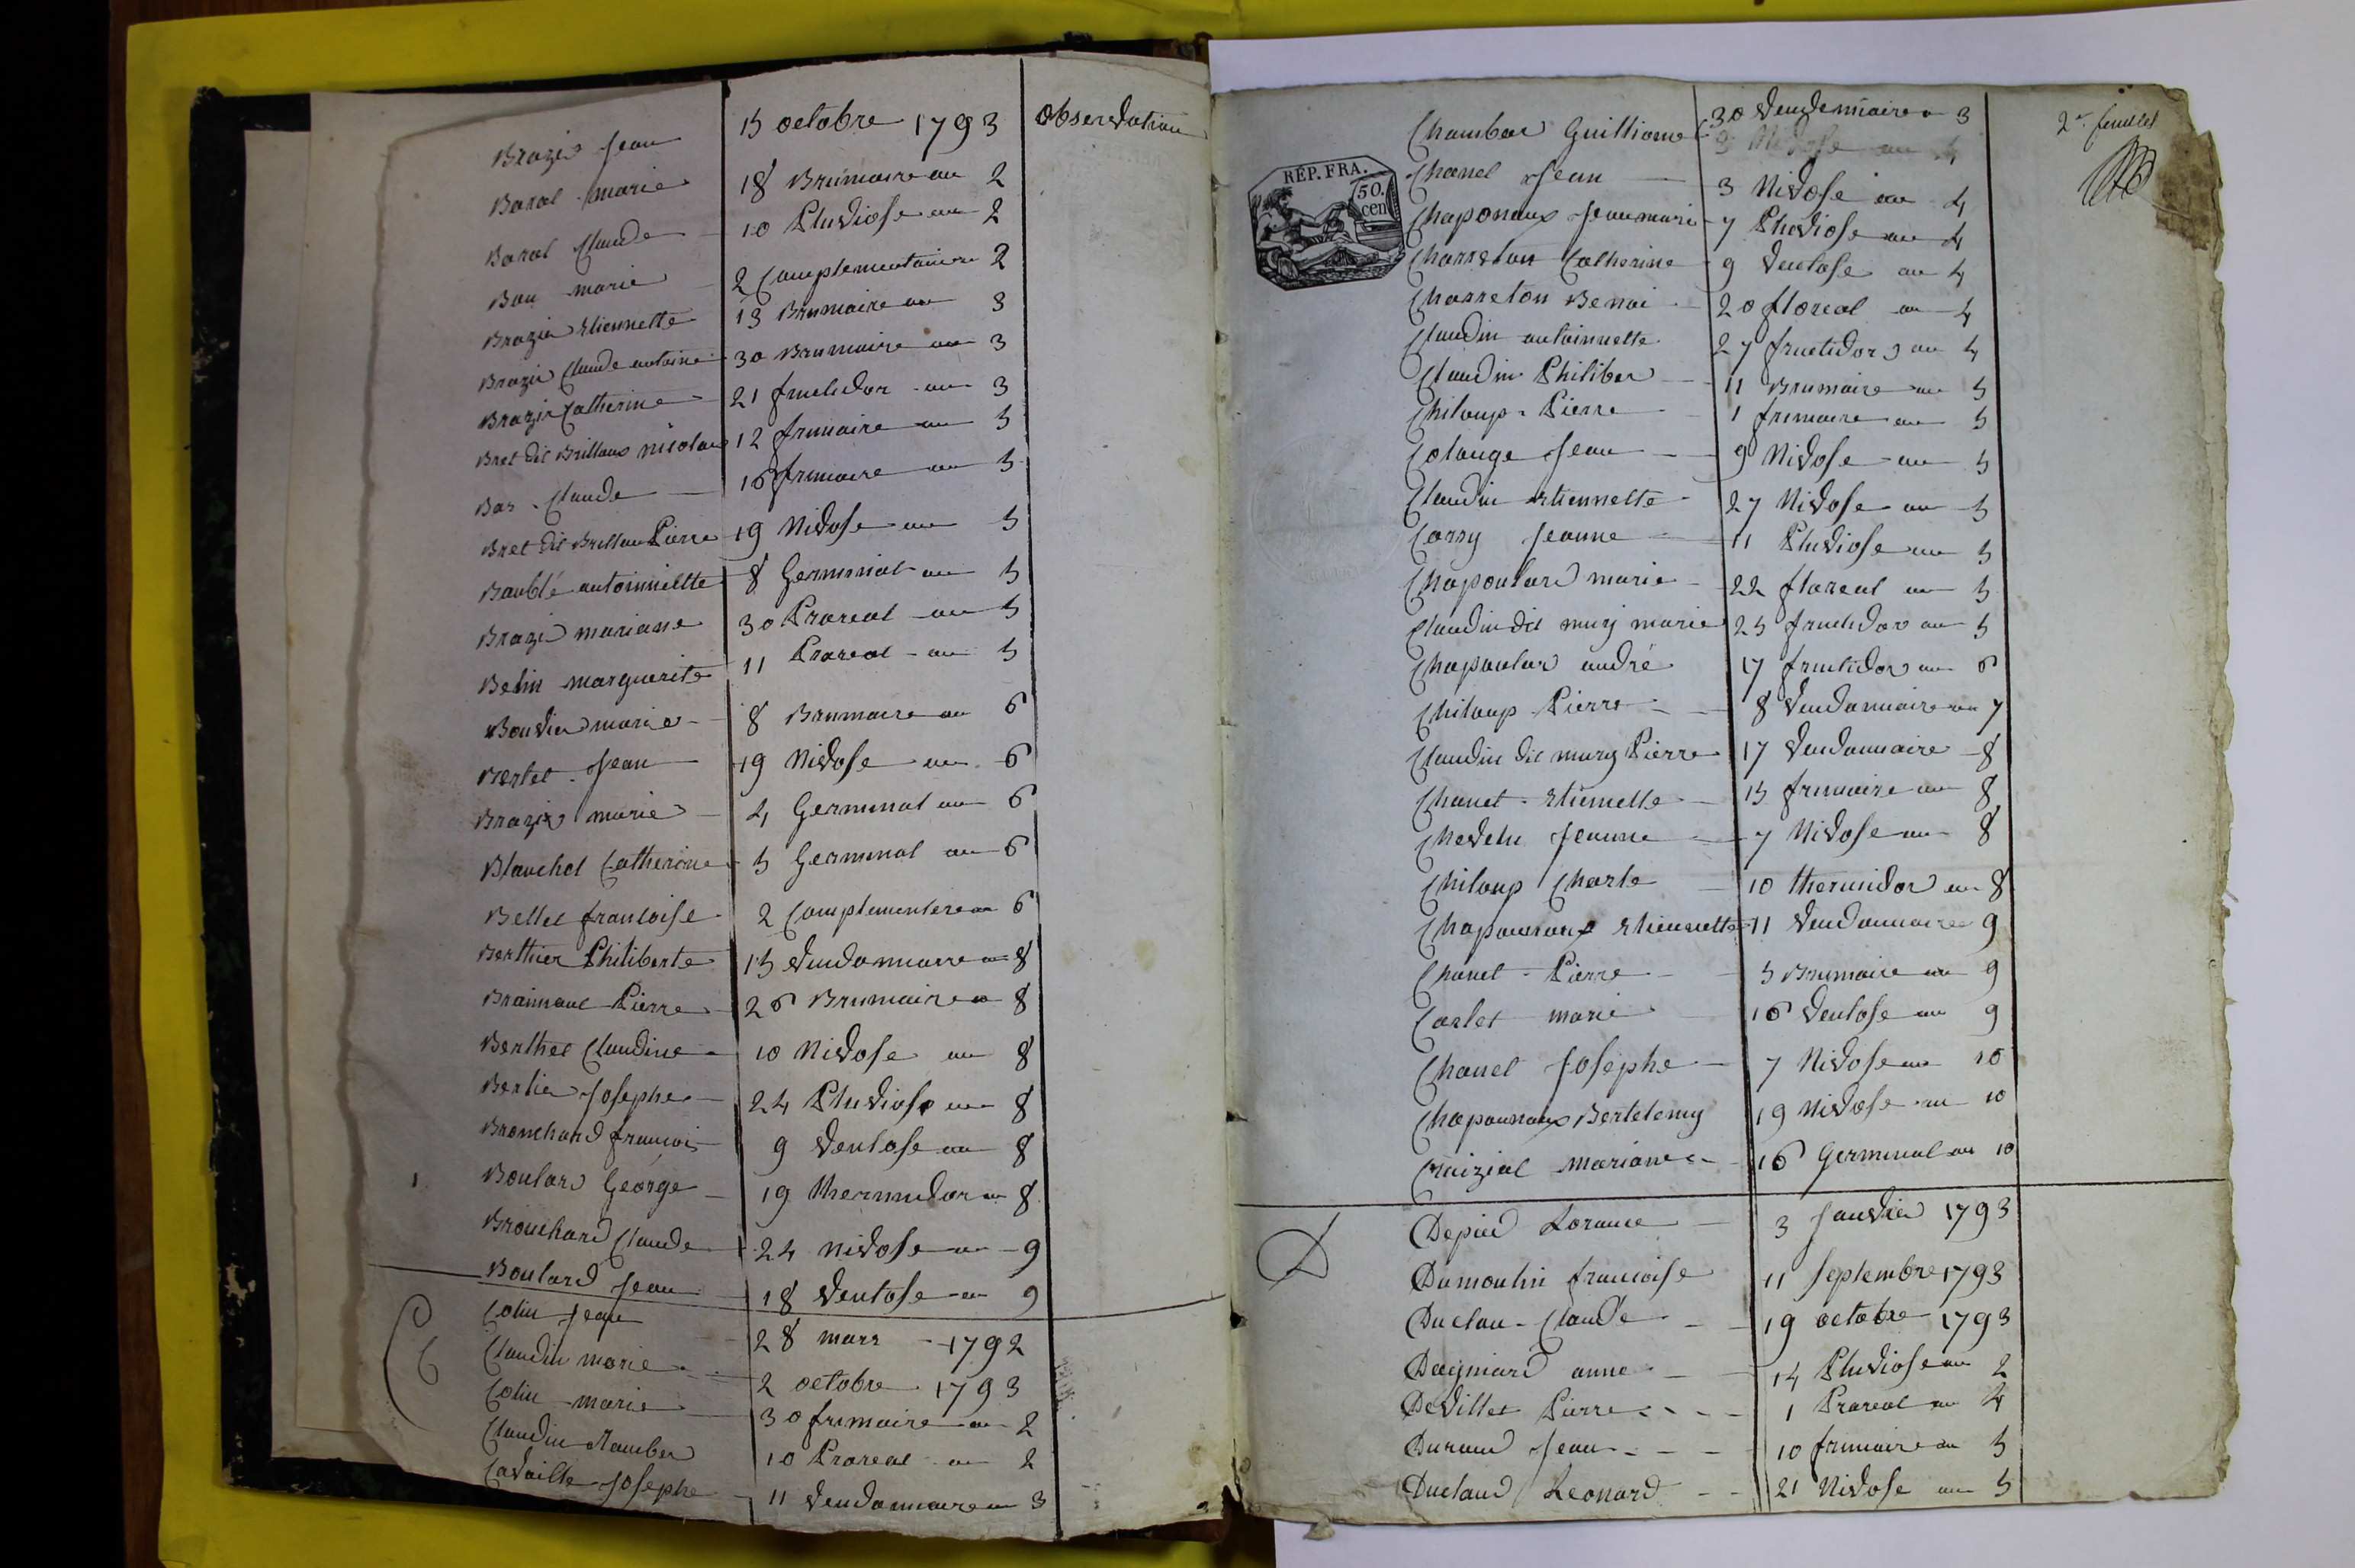 15 octobre 1793 Observation
Brazier Jean
Baral marie 18 Brumaire an 2
Baral Claude 10 Pluviose an 2
Bau marie 2 Complementaire 2
Brazier Etiennette 13 Brumaire an 3
Brazier Claude antoine 30 Brumaire an 3
Brazier Catherine 21 fructidor an 3
Bret dit Brillaux nicolas 12 frimaire an 5
Bar Claude 16 frimaire an 5
Bret dit Brillau Pierre 19 Nivose an 5
Baublé antoinnielte 8 Germinal an 5
Brazier mariane 30 Prareal an 5
Belin marguerite 11 Prareal an 5
Bouvier marie 8 Brumaire an 6
Bertet Jean 19 Nivose an 6
Brazier marie 4 Germinal an 6
Blanchet Catherine 5 Germinal an 6
Bellet francoise 2 Complementere an 6
Berthier Philiberte 15 vendanmiaire an 8
Pierre 26 Brumaire an 8
Berthet Claudine 10 Nivose an 8
Bertier Josephe 24 Pluviose an 8
Bronchard francois 9 ventose an 8
1 Boulard George 19 thermidor an 8
Brouchard Claude 24 nivose an 9
Boulard Jean 18 ventose an 9
C Colin Jean 28 mars 1792
Claudin marie 2 octobre 1793
Colin marie 30 frimaire an 2
Claudin 10 Prareal an 2
Cavaille Josephe 11 vendanmiaire an 3
2e feuillet
Chambar Guilliaume 30 vendemiaire 3
RÉP. FRA.
50. cen
Chanel Jean 3 Nivose an 4
Chaponaux Jeanmarie 7 Pluviose an 4
Charreton Catherine 9 ventose an 4
Charreton Benoi 20 floreal an 4
Claudin antoinnette 27 fructidor an 4
Claudin Philiber 11 Brumaire an 5
Chiloup Pierre 1 frimaire an 5
Colange Jean 9 Nivose an 5
Claudin Etiennette 27 Nivose an 5
Carry Jeanne 11 Pluviose an 5
Chapoular marie 22 floreal an 5
Claudin dit mury marie 25 fructidor an 5
Chapoular andré 17 fructidor an 6
Chiloup Pierre 8 vendanmiaire an 7
Claudin dit mury Pierre 17 vendanmiaire 8
Chanet Etiennette 15 frimaire an 8
Chevelu Jeanne 7 Nivose an 8
Chiloup Charle 10 thermidor an 8
Etiennette 11 vendanmiaire 9
Chanel Pierre 5 Brumaire an 9
Carlet marie 16 ventose an 9
Chanel Josephe 7 Nivose an 10
Chaponnaux Bertelemy 19 Nivose an 10
Cruizial Mariane 16 Germinal an 10
D Depied Lorance 3 Janvier 1793
Dumoulin francoise 11 Septembre 1793
Duclau Claude 19 octobre 1793
Dagniard anne 14 Pluviose an 2
Devillet Pierre 1 Prareal an 4
Durand Jean 10 frimaire an 5
Duclaud Leonard 21 Nivose an 5